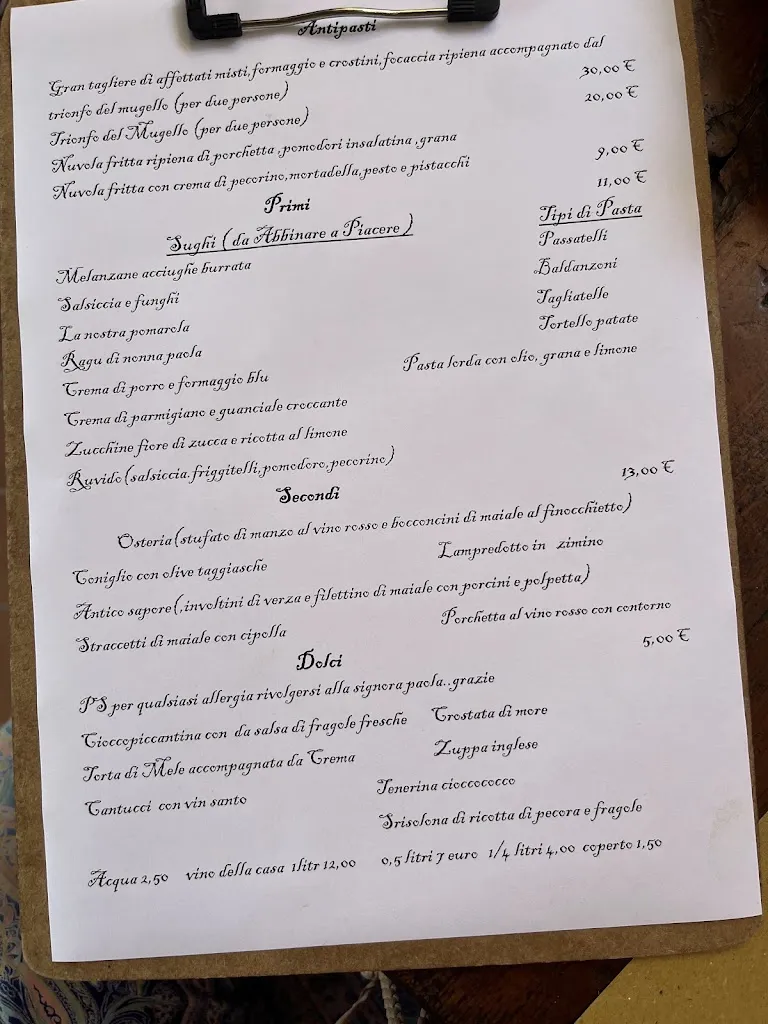 Antipasti
Gran tagliere di affettati misti,formaggio e crostini,focaccia ripiena accompagnato dal
trionfo del mugello (per due persone) 30,00 €
Trionfo del Mugello (per due persone) 20,00 €
Nuvola fritta ripiena di porchetta ,pomodori insalatina ,grana 9,00 €
Nuvola fritta con crema di pecorino,mortadella,pesto e pistacchi 11,00 €
Primi
Sughi ( da Abbinare a Piacere ) Tipi di Pasta
Melanzane acciughe burrata Passatelli
Salsiccia e funghi Baldanzoni
La nostra pomarola Tagliatelle
Ragu di nonna paola Tortello patate
Crema di porro e formaggio blu Pasta lorda con olio, grana e limone
Crema di parmigiano e guanciale croccante
Zucchine fiore di zucca e ricotta al limone
Ruvido (salsiccia.friggitelli,pomodoro,pecorino) 13,00 €
Secondi
Osteria (stufato di manzo al vino rosso e bocconcini di maiale al finocchietto)
Coniglio con olive taggiasche Lampredotto in zimino
Antico sapore (,involtini di verza e filettino di maiale con porcini e polpetta)
Straccetti di maiale con cipolla Porchetta al vino rosso con contorno
Dolci 5,00 €
PS per qualsiasi allergia rivolgersi alla signora paola..grazie
Cioccopiccantina con da salsa di fragole fresche Crostata di more
Torta di Mele accompagnata da Crema Zuppa inglese
Cantucci con vin santo Tenerina cioccococco
Srisolona di ricotta di pecora e fragole
Acqua 2,50 vino della casa 1litr 12,00 0,5 litri 7 euro 1/4 litri 4,00 coperto 1,50